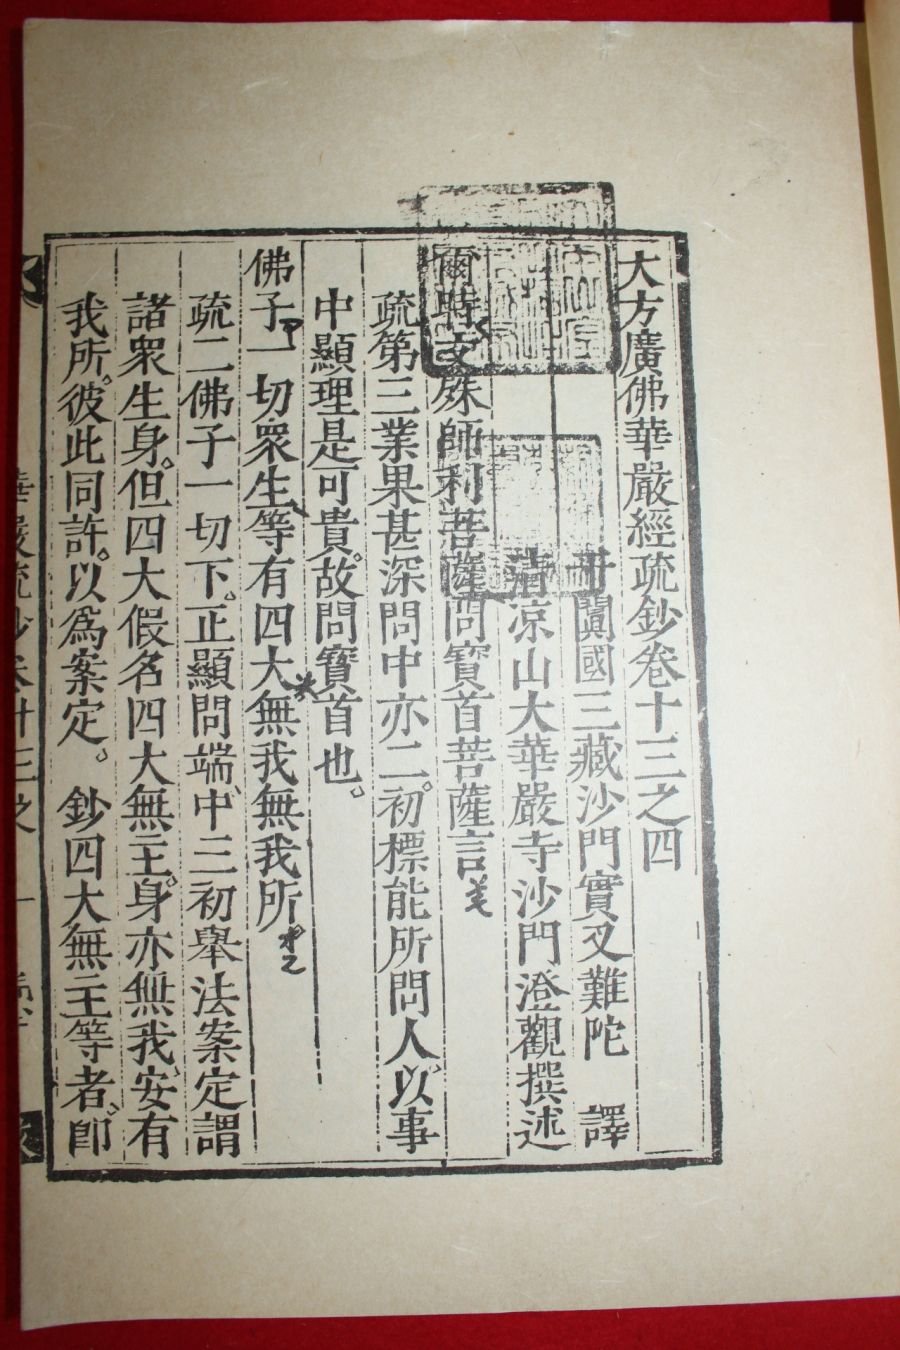 大方廣佛華嚴經疏鈔卷十三之四
于闐國三藏沙門實叉難陀　譯
清涼山大華嚴寺沙門澄觀撰述
爾時文殊師利菩薩問寶首菩薩言
疏第三業果甚深問中亦二。初標能所問人以事
中顯理是可貴。故問寶首也。
佛子一切眾生等有四大無我無我所。
疏二佛子一切下。正顯問端、中三初舉法案定謂
諸眾生身。但四大假名四大無主。身亦無我、安有
我所。彼此同許。以為案定。　鈔四大無主等者、卽
華嚴疏鈔卷十三之